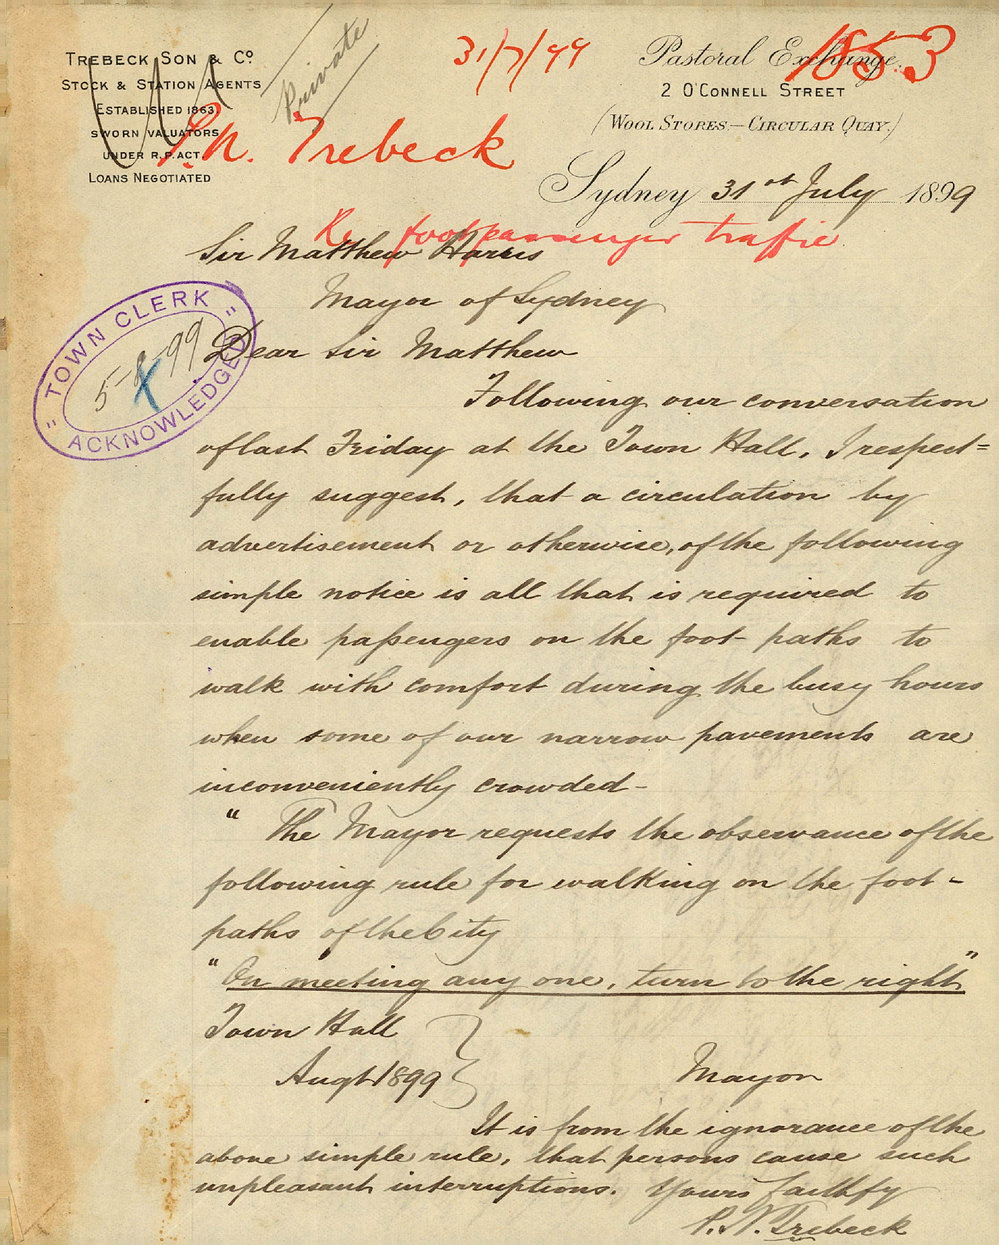 TREBECK SON & Cº
STOCK & STATION AGENTS
ESTABLISHED 1863.
SWORN VALUATORS
UNDER R.P. ACT.
LOANS NEGOTIATED
Private
31/7/99
1853
Pastoral Exchange,
2 O'CONNELL STREET
(WOOL STORES.—CIRCULAR QUAY.)
P.N. Trebeck
Sydney 31st July 1899
Re foot passenger traffic
Sir Matthew Harris
Mayor of Sydney
"TOWN CLERK"
5-8-99
ACKNOWLEDGED
Dear Sir Matthew
Following our conversation
of last Friday at the Town Hall, I respect=
fully suggest, that a circulation by
advertisement or otherwise, of the following
simple notice is all that is required to
enable passengers on the foot-paths to
walk with comfort during the busy hours
when some of our narrow pavements are
inconveniently crowded-
" The Mayor requests the observance of the
following rule for walking on the foot-
paths of the City
"On meeting any one, turn to the right"
Town Hall
Augt 1899
Mayor
It is from the ignorance of the
above simple rule, that persons cause such
unpleasant interruptions. Yours faithfy
P.N. Trebeck